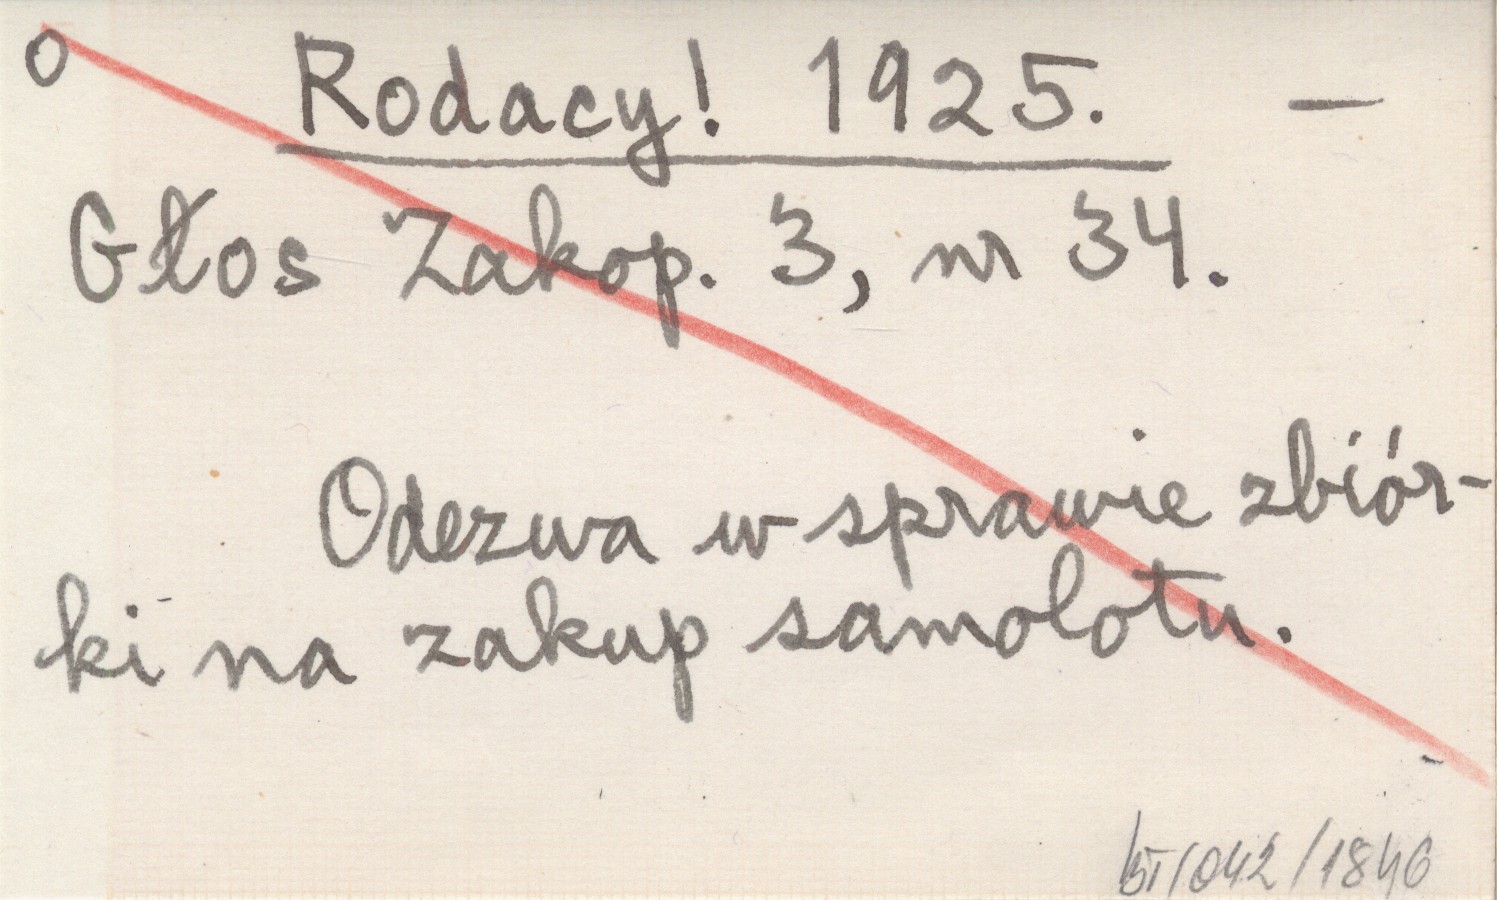 o Rodacy! 1925. —
Głos Zakop. 3, nr 34.
Odezwa w sprawie zbiór-
ki na zakup samolotu.
/042/1846